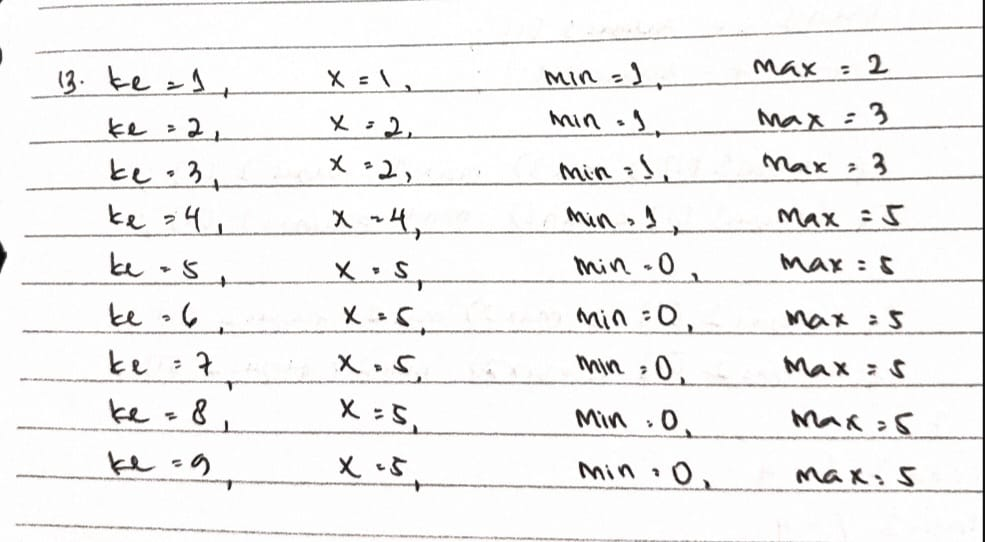 13. ke = 1, x = 1, min = 1, max = 2
ke = 2, x = 2, min = 1, max = 3
ke = 3, x = 2, min = 1, max = 3
ke = 4, x = 4, min = 1, max = 5
ke = 5, x = 5, min = 0, max = 5
ke = 6, x = 5, min = 0, max = 5
ke = 7, x = 5, min = 0, max = 5
ke = 8, x = 5, min = 0, max = 5
ke = 9, x = 5, min = 0, max = 5